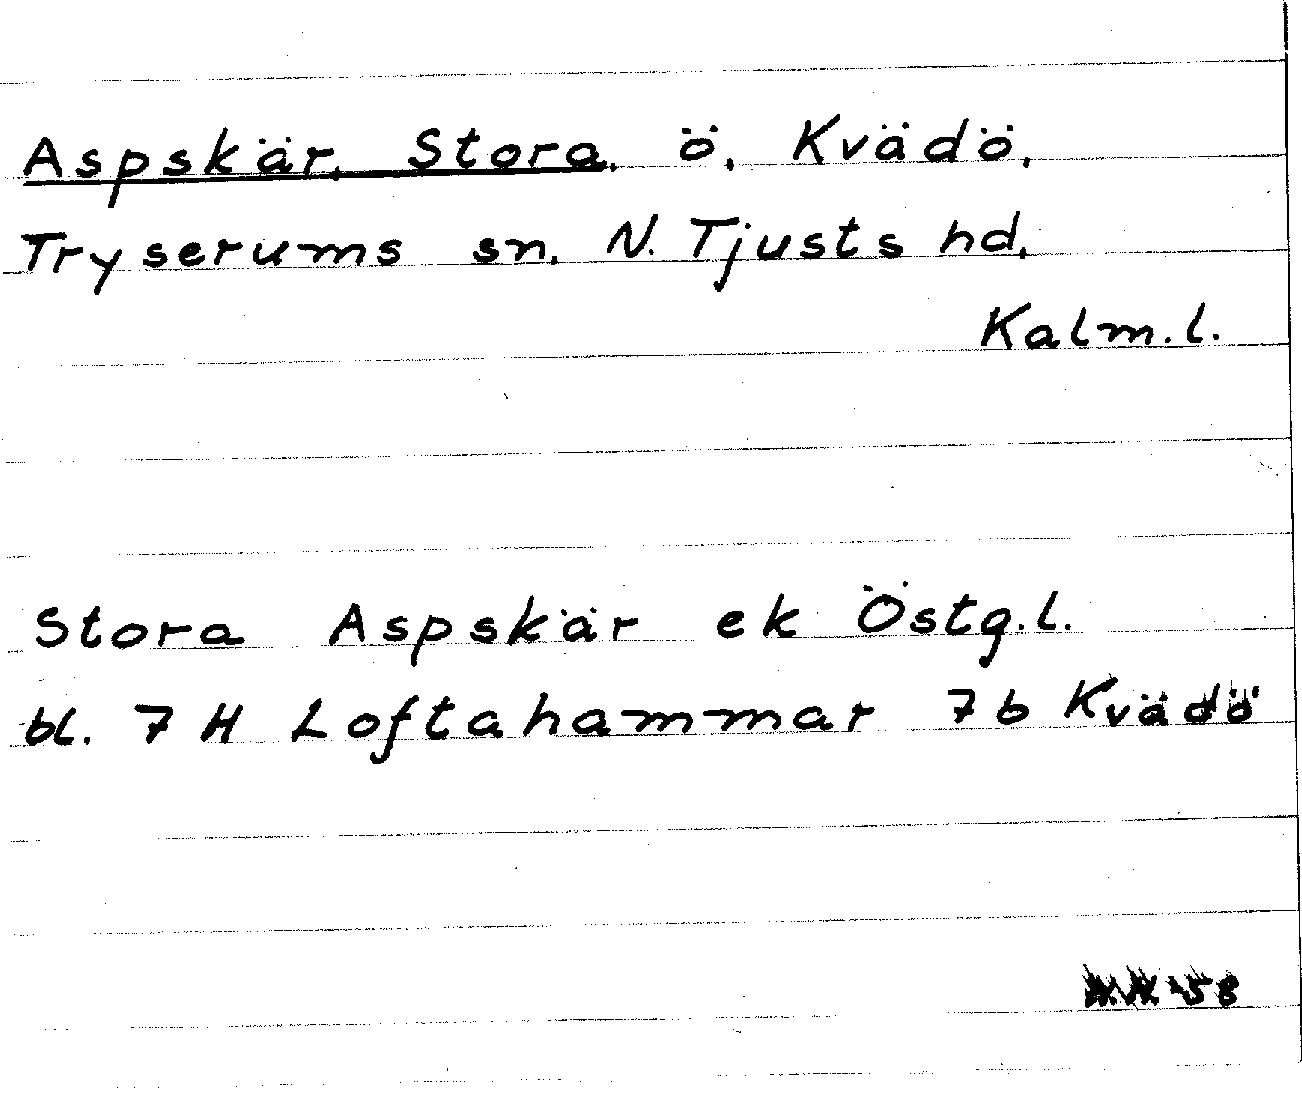 Aspskär, Stora, ö, Kvädö,
Tryserums sn, N. Tjusts hd,
Kalm.l.
Stora Aspskär ek Östg.l.
bl. 7 H Loftahammar 7b Kvädö
58